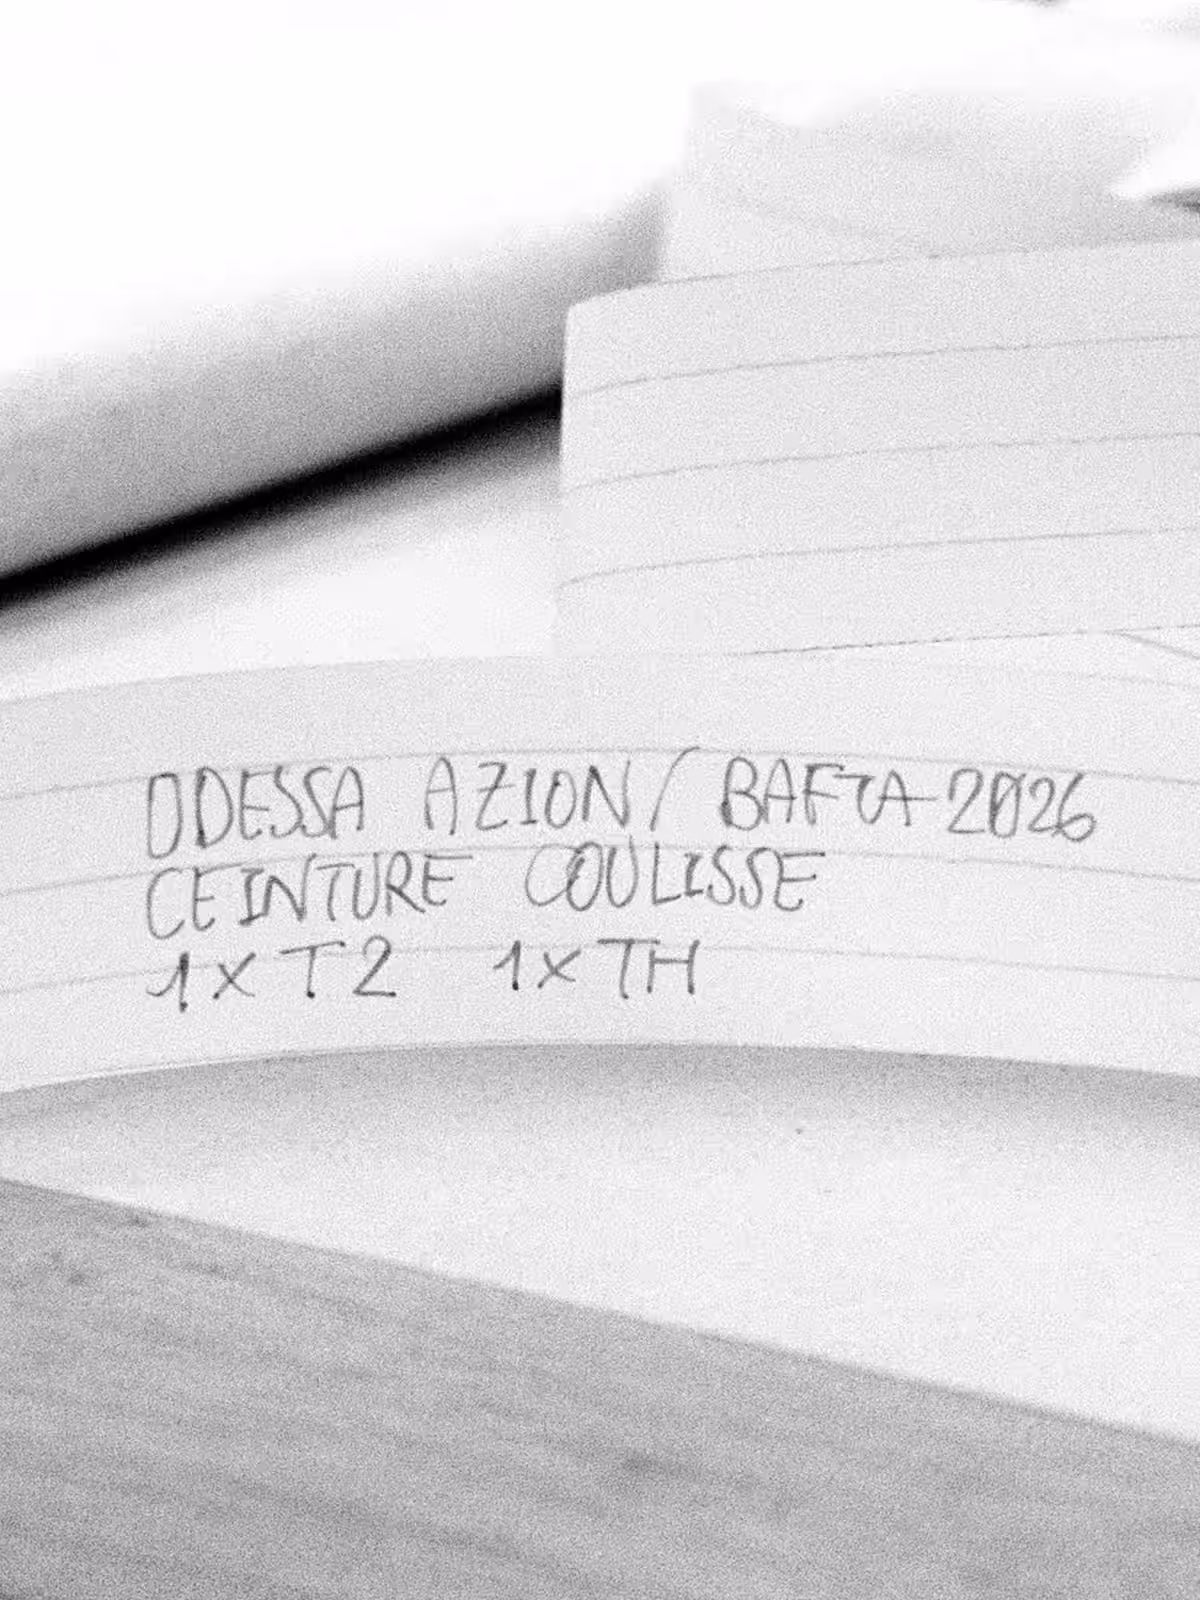 ODESSA AZION / BAFTA 2026
CEINTURE COULISSE
1 x T2 1 x TH